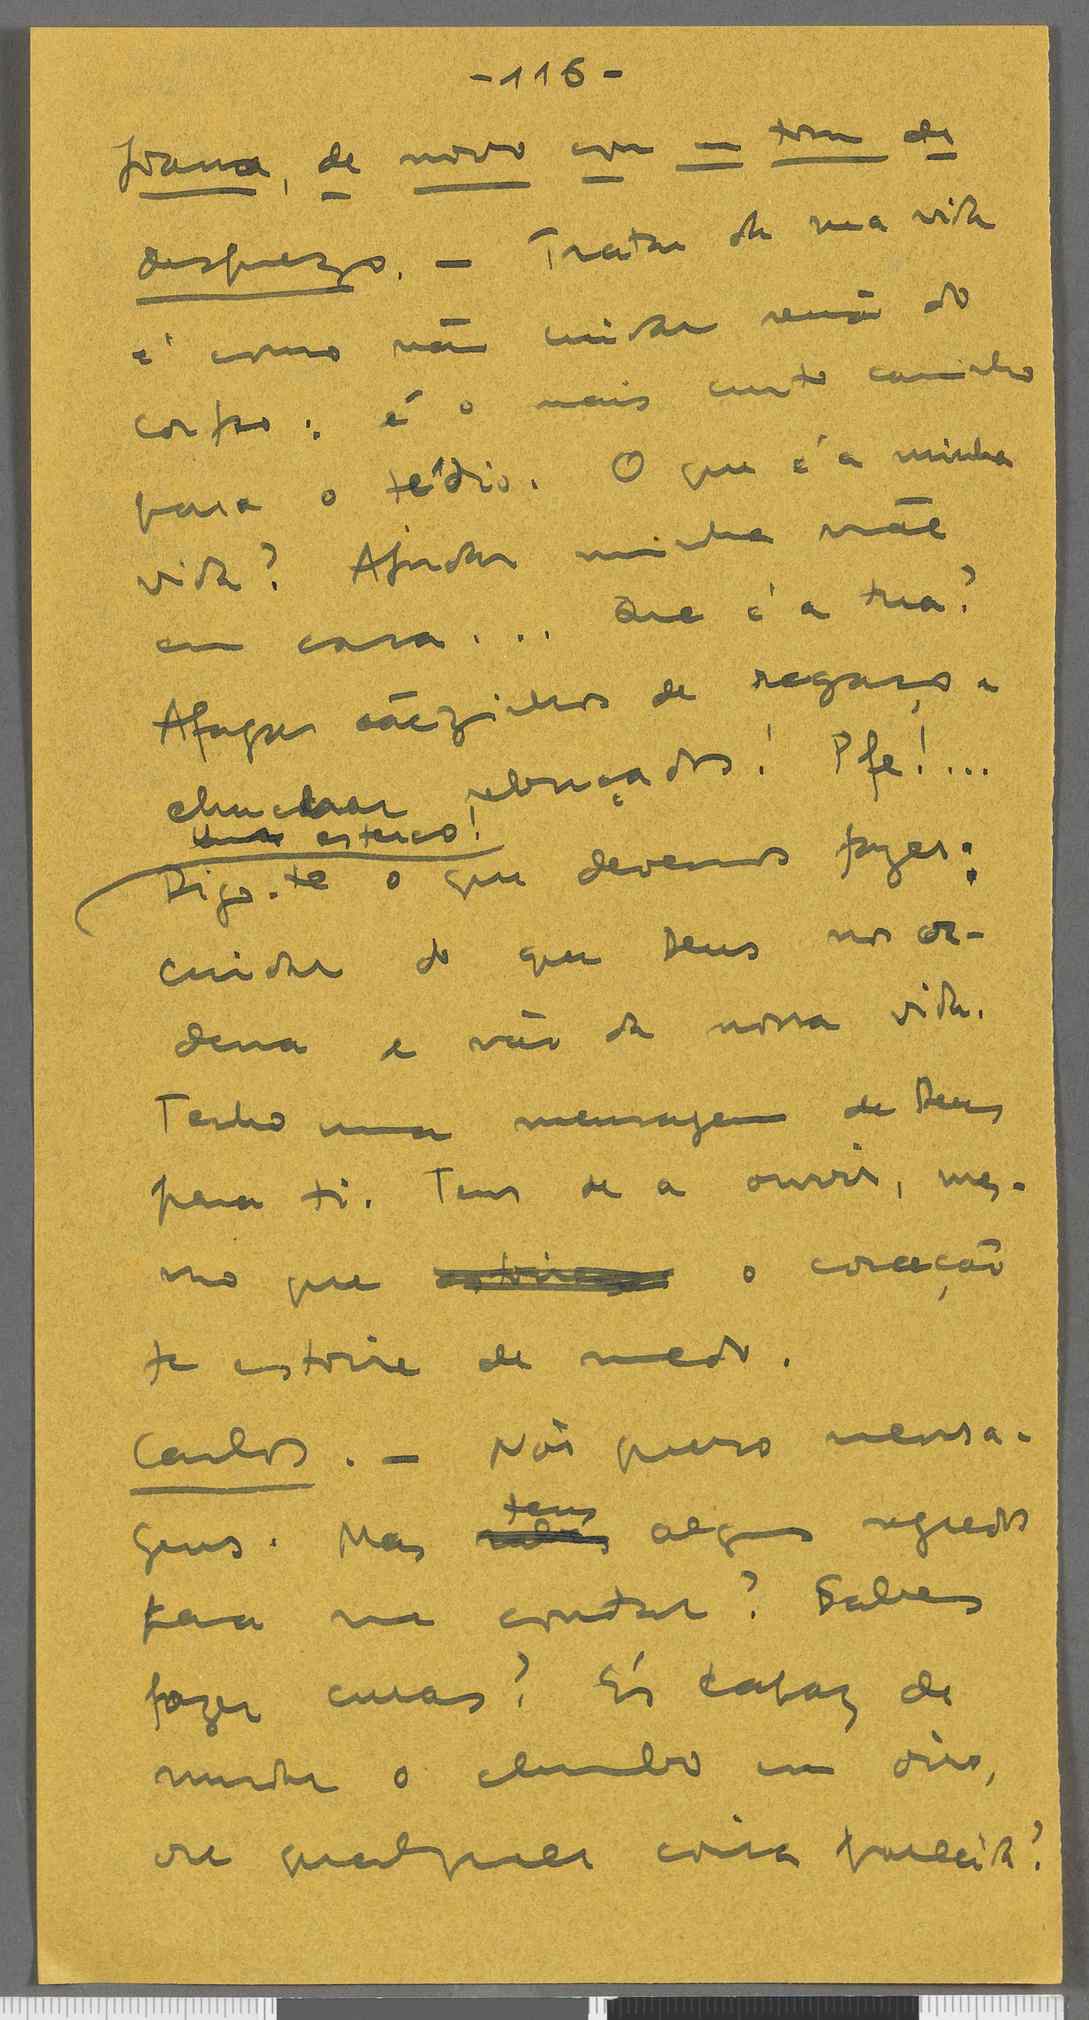 -116-
Joana, de novo em um tom de
desprezo. - Tratar da sua vida
é como não cuidar senão do
corpo: é o mais curto caminho
para o tédio. O que é a minha
vida? Ajudar minha mãe
em casa.... Que é a tua?
Afagar cãezinhos de regaço e
chuchar rebuçados! Pfe!...
esterco!
Digo-te o que devemos fazer:
cuidar do que Deus nos or-
dena e não da nossa vida.
Tenho uma mensagem de Deus
para ti. Tens de a ouvir, mes-
mo que o coração
te estoire de medo.
Carlos. - Não quero mensa-
gens. Mas tens algum segredo
para me contar? Sabes
fazer curas? És capaz de
mudar o chumbo em oiro,
ou qualquer coisa parecida?